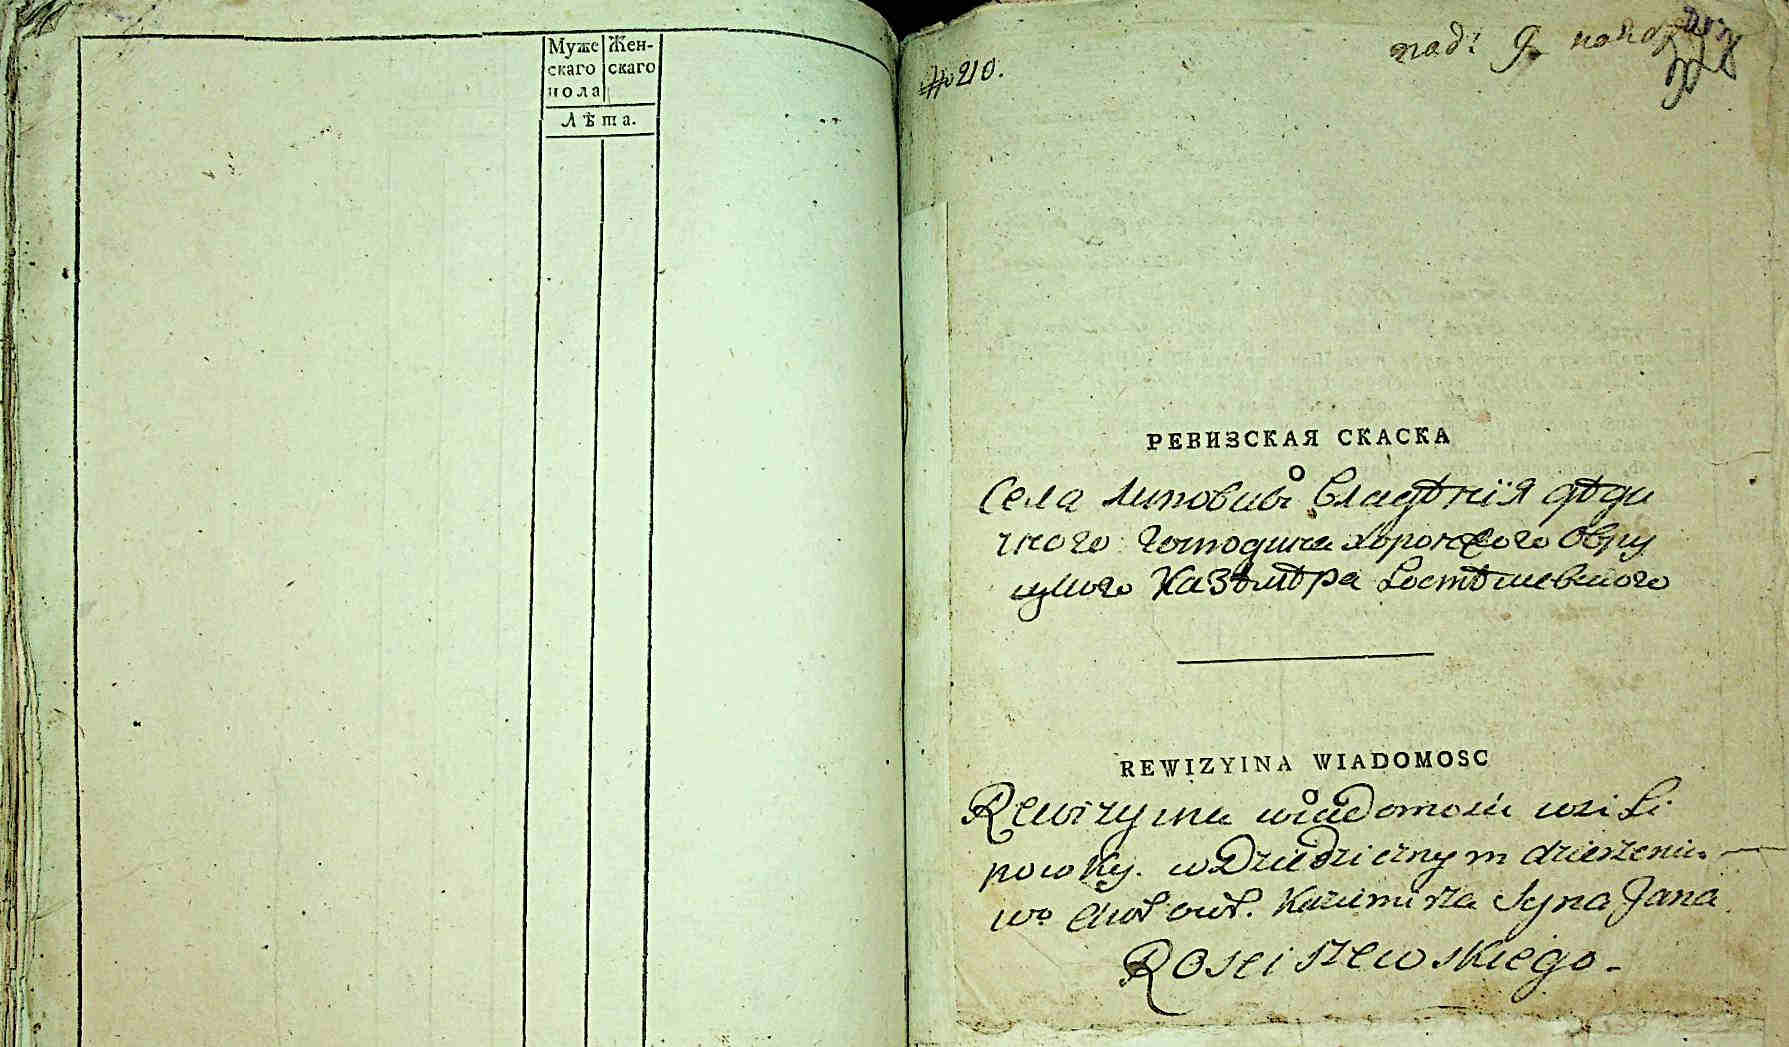 Муже Жен-
скаго скаго
пола
Лѣта.
№ 210.
над:
РЕВИЗСКАЯ СКАСКА
О
Села Липовки владѣнїя дѣди
чного Господина хоронжого Овру
цкого КазѣмѣраРостѣшевского
REWIZYINA WIADOMOSC
O
Rewizyina wiadomość wsi Li
powky. w Dziedzicznym dzierżeniu
Kazimirza Syna Jana
Rosciszewskiego.